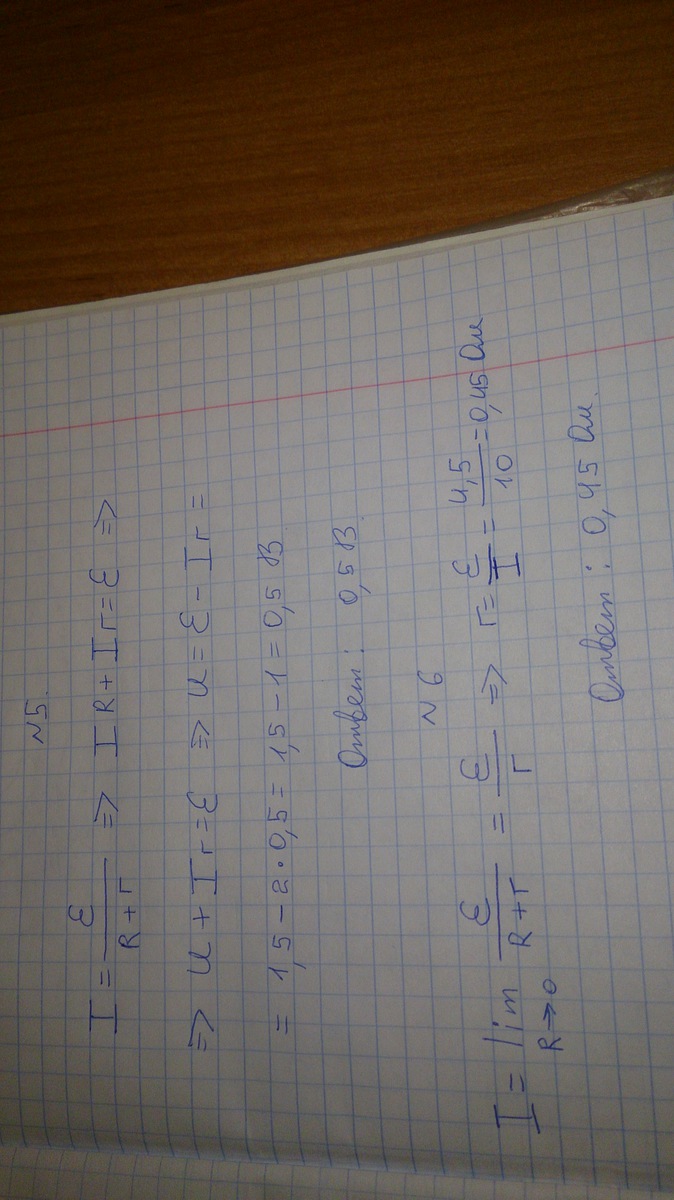 №5.
I = ε/(R+r) => IR + Ir = ε =>
=> U + Ir = ε => U = ε - Ir =
= 1,5 - 2·0,5 = 1,5 - 1 = 0,5 В
Ответ: 0,5 В.
№6
I = lim R→0 ε/(R+r) = ε/r => r = ε/I = 4,5/10 = 0,45 Ом
Ответ: 0,45 Ом.